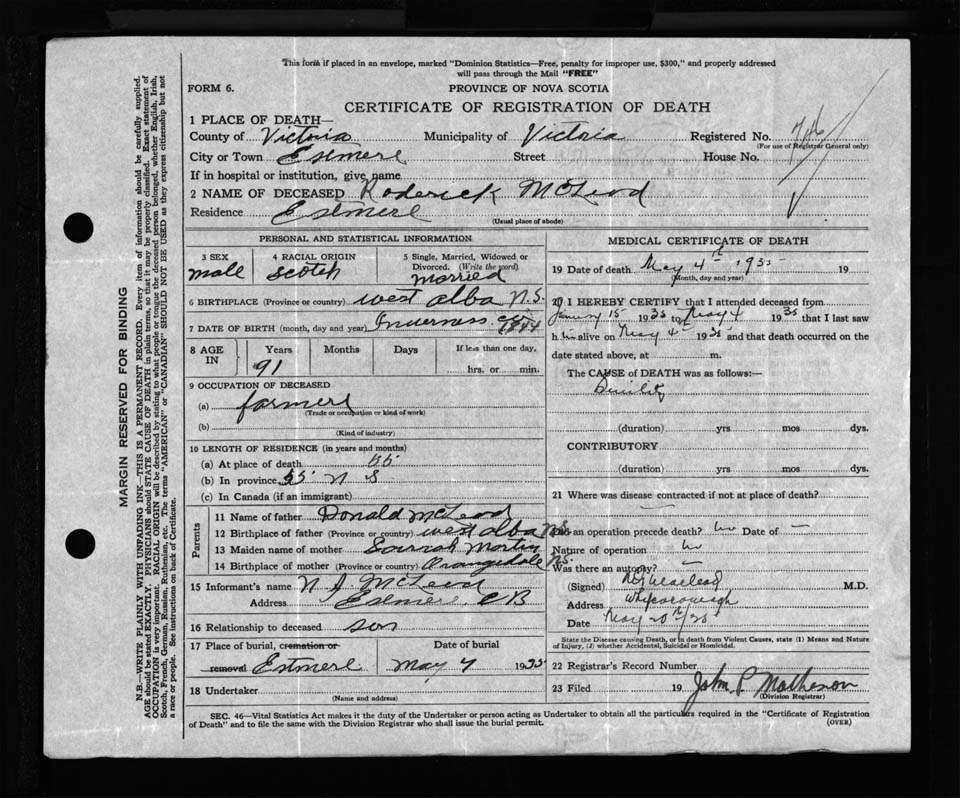 This form if placed in an envelope, marked "Dominion Statistics—Free, penalty for improper use, $300," and properly addressed
will pass through the Mail "FREE"
FORM 6.
PROVINCE OF NOVA SCOTIA
CERTIFICATE OF REGISTRATION OF DEATH
1 PLACE OF DEATH—
County of Victoria Municipality of Victoria Registered No.
(For use of Registrar General only)
City or Town Estmere Street House No.
If in hospital or institution, give name
2 NAME OF DECEASED Roderick McLeod
Residence Estmere
(Usual place of abode)
PERSONAL AND STATISTICAL INFORMATION
3 SEX
male
4 RACIAL ORIGIN
Scotch
5 Single, Married, Widowed or
Divorced. (Write the word)
married
6 BIRTHPLACE (Province or country) west alba N.S.
Inverness Co
7 DATE OF BIRTH (month, day and year) 1844
8 AGE IN
Years Months Days If less than one day,
91 hrs. or min.
9 OCCUPATION OF DECEASED
(a) farmer
(Trade or occupation or kind of work)
(b)
(Kind of industry)
10 LENGTH OF RESIDENCE (in years and months)
(a) At place of death 55
(b) In province 55 N S
(c) In Canada (if an immigrant)
Parents
11 Name of father Donald McLeod
12 Birthplace of father (Province or country) west alba N.S.
13 Maiden name of mother Martin
14 Birthplace of mother (Province or country) Orangedale N.S.
15 Informant's name N. J. McLeod
Address Estmere CB
16 Relationship to deceased son
17 Place of burial, cremation or Date of burial
removal Estmere May 7 1935
18 Undertaker
(Name and address)
MEDICAL CERTIFICATE OF DEATH
19 Date of death May 4th 1935 19
(Month, day and year)
20 I HEREBY CERTIFY that I attended deceased from
January 15 1935 to May 4 1935 that I last saw
h im alive on May 4 1935 and that death occurred on the
date stated above, at m.
The CAUSE of DEATH was as follows:—
(duration) yrs mos dys.
CONTRIBUTORY
(duration) yrs mos dys.
21 Where was disease contracted if not at place of death?
Did an operation precede death? no Date of —
Nature of operation
Was there an autopsy? no
(Signed) MacLeod M.D.
Address Whycocomagh
Date May 20th/35
State the Disease causing Death, or in death from Violent Causes, state (1) Means and Nature
of Injury, (2) whether Accidental, Suicidal or Homicidal.
22 Registrar's Record Number
23 Filed 19 John P. Matheson
(Division Registrar)
SEC. 46—Vital Statistics Act makes it the duty of the Undertaker or person acting as Undertaker to obtain all the particulars required in the "Certificate of Registration
of Death" and to file the same with the Division Registrar who shall issue the burial permit.
(OVER)
MARGIN RESERVED FOR BINDING
N.B.—WRITE PLAINLY WITH UNFADING INK—THIS IS A PERMANENT RECORD. Every item of information should be carefully supplied.
AGE should be stated EXACTLY. PHYSICIANS should STATE CAUSE OF DEATH in plain terms, so that it may be properly classified. Exact statement of
OCCUPATION is very important. RACIAL ORIGIN will be described by stating to what people or tongue the deceased person belonged, whether English, Irish,
Scotch, French, German, Russian, Ruthenian, etc. The terms "AMERICAN" or "CANADIAN" SHOULD NOT BE USED as they express citizenship but not
a race or people. See instructions on back of Certificate.